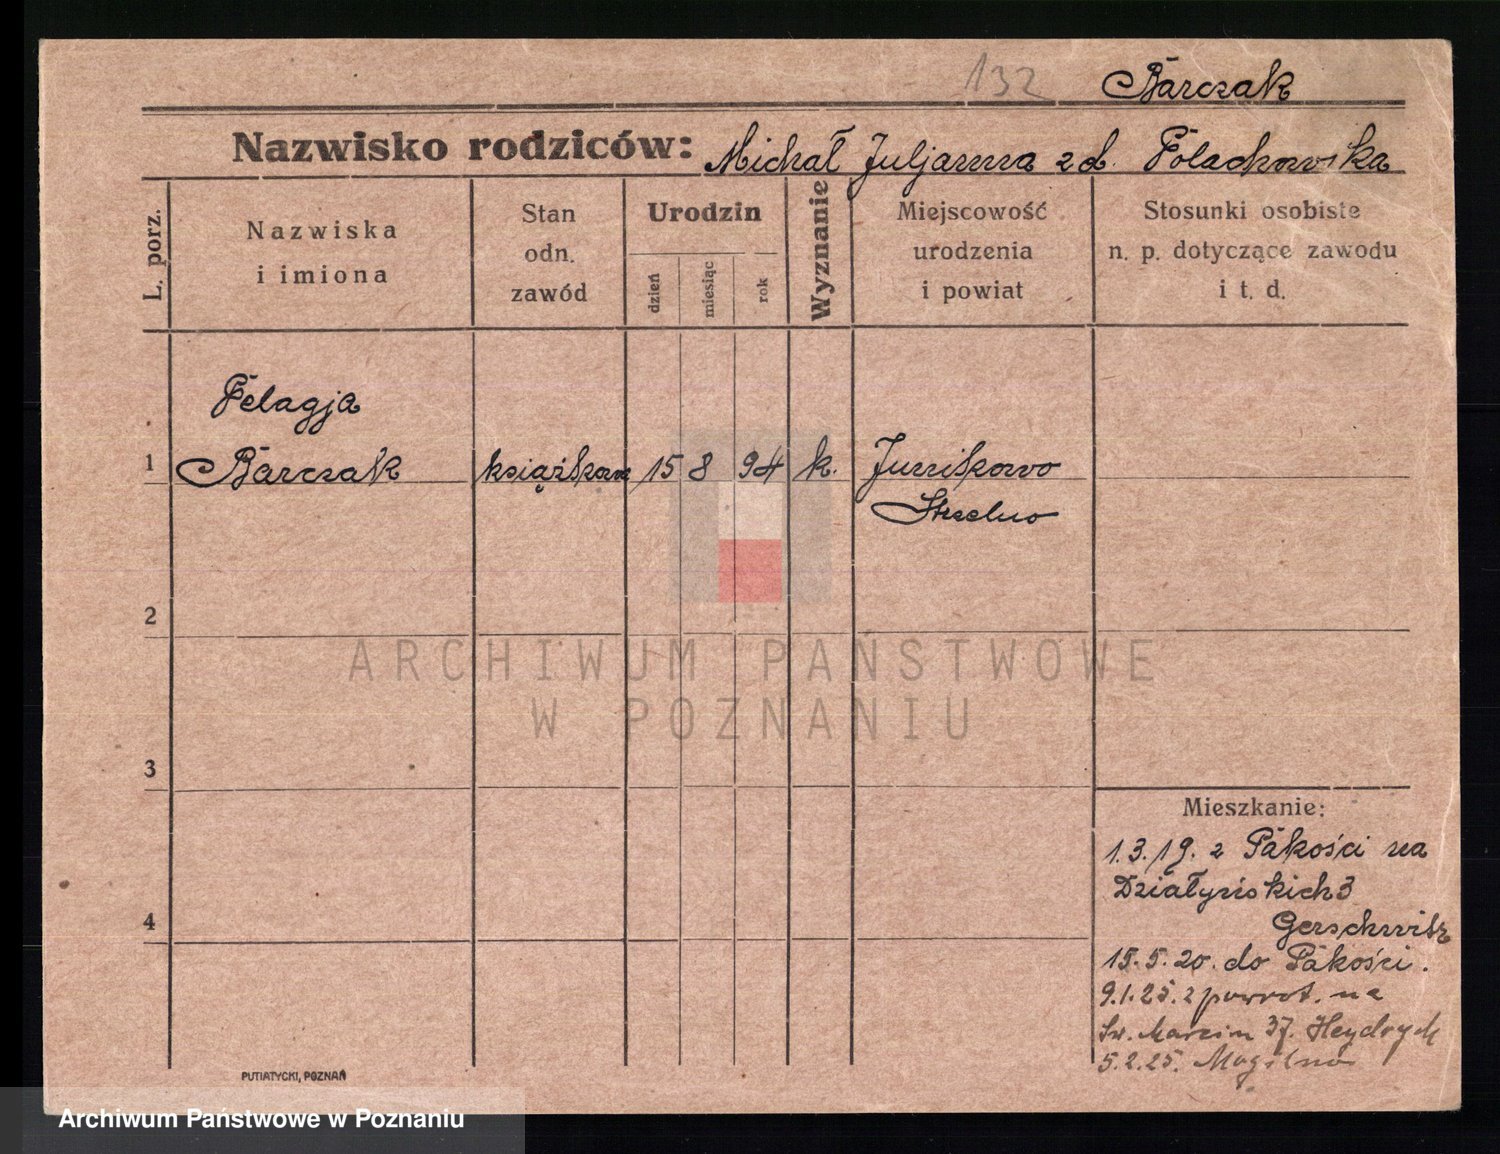 132 Barczak
Nazwisko rodziców: Michał Juljanna z d. Polachowska
L. porz.
Nazwiska
i imiona
Stan
odn.
zawód
Urodzin
dzień
miesiąc
rok
Wyznanie
Miejscowość
urodzenia
i powiat
Stosunki osobiste
n. p. dotyczące zawodu
i t. d.
Pelagja
1 Barczak książkow 15 8 94 k.
Strzelno
2
3
4
Mieszkanie:
1.3.19. z Pakości na
Działyńskich 3
Gerschwitz
15.5.20. do Pakości.
9.1.25. z powrot. na
Św. Marcin 37. Heydrych
5.2.25. Mogilno
PUTIATYCKI, POZNAŃ
ARCHIWUM PAŃSTWOWE
W POZNANIU
Archiwum Państwowe w Poznaniu